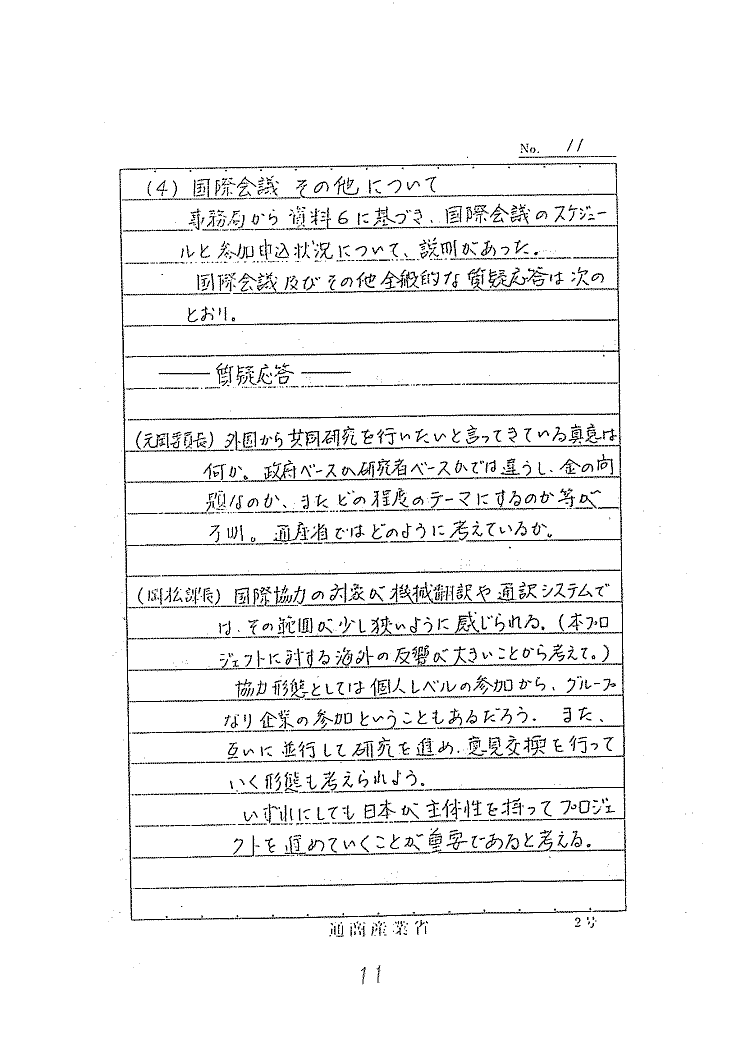 No. 11
(4) 国際会議 その他について
事務局から資料6に基づき、国際会議のスケジュー
ルと参加申込状況について、説明があった。
国際会議及びその他全般的な質疑応答は次の
とおり。
――― 質疑応答 ―――
(元岡委員長) 外国から共同研究を行いたいと言ってきている真意は
何か。政府ベースか研究者ベースかでは違うし、金の問
題なのか、またどの程度のテーマにするのか等が
不明。通産省ではどのように考えているか。
(岡松課長) 国際協力の対象が機械翻訳や通訳システムで
は、その範囲が少し狭いように感じられる。(本プロ
ジェクトに対する海外の反響が大きいことから考えて。)
協力形態としては個人レベルの参加から、グループ
なり企業の参加ということもあるだろう。また、
互いに並行して研究を進め、意見交換を行って
いく形態も考えられよう。
いずれにしても日本が主体性を持ってプロジェ
クトを進めていくことが重要であると考える。
通商産業省
2号
11